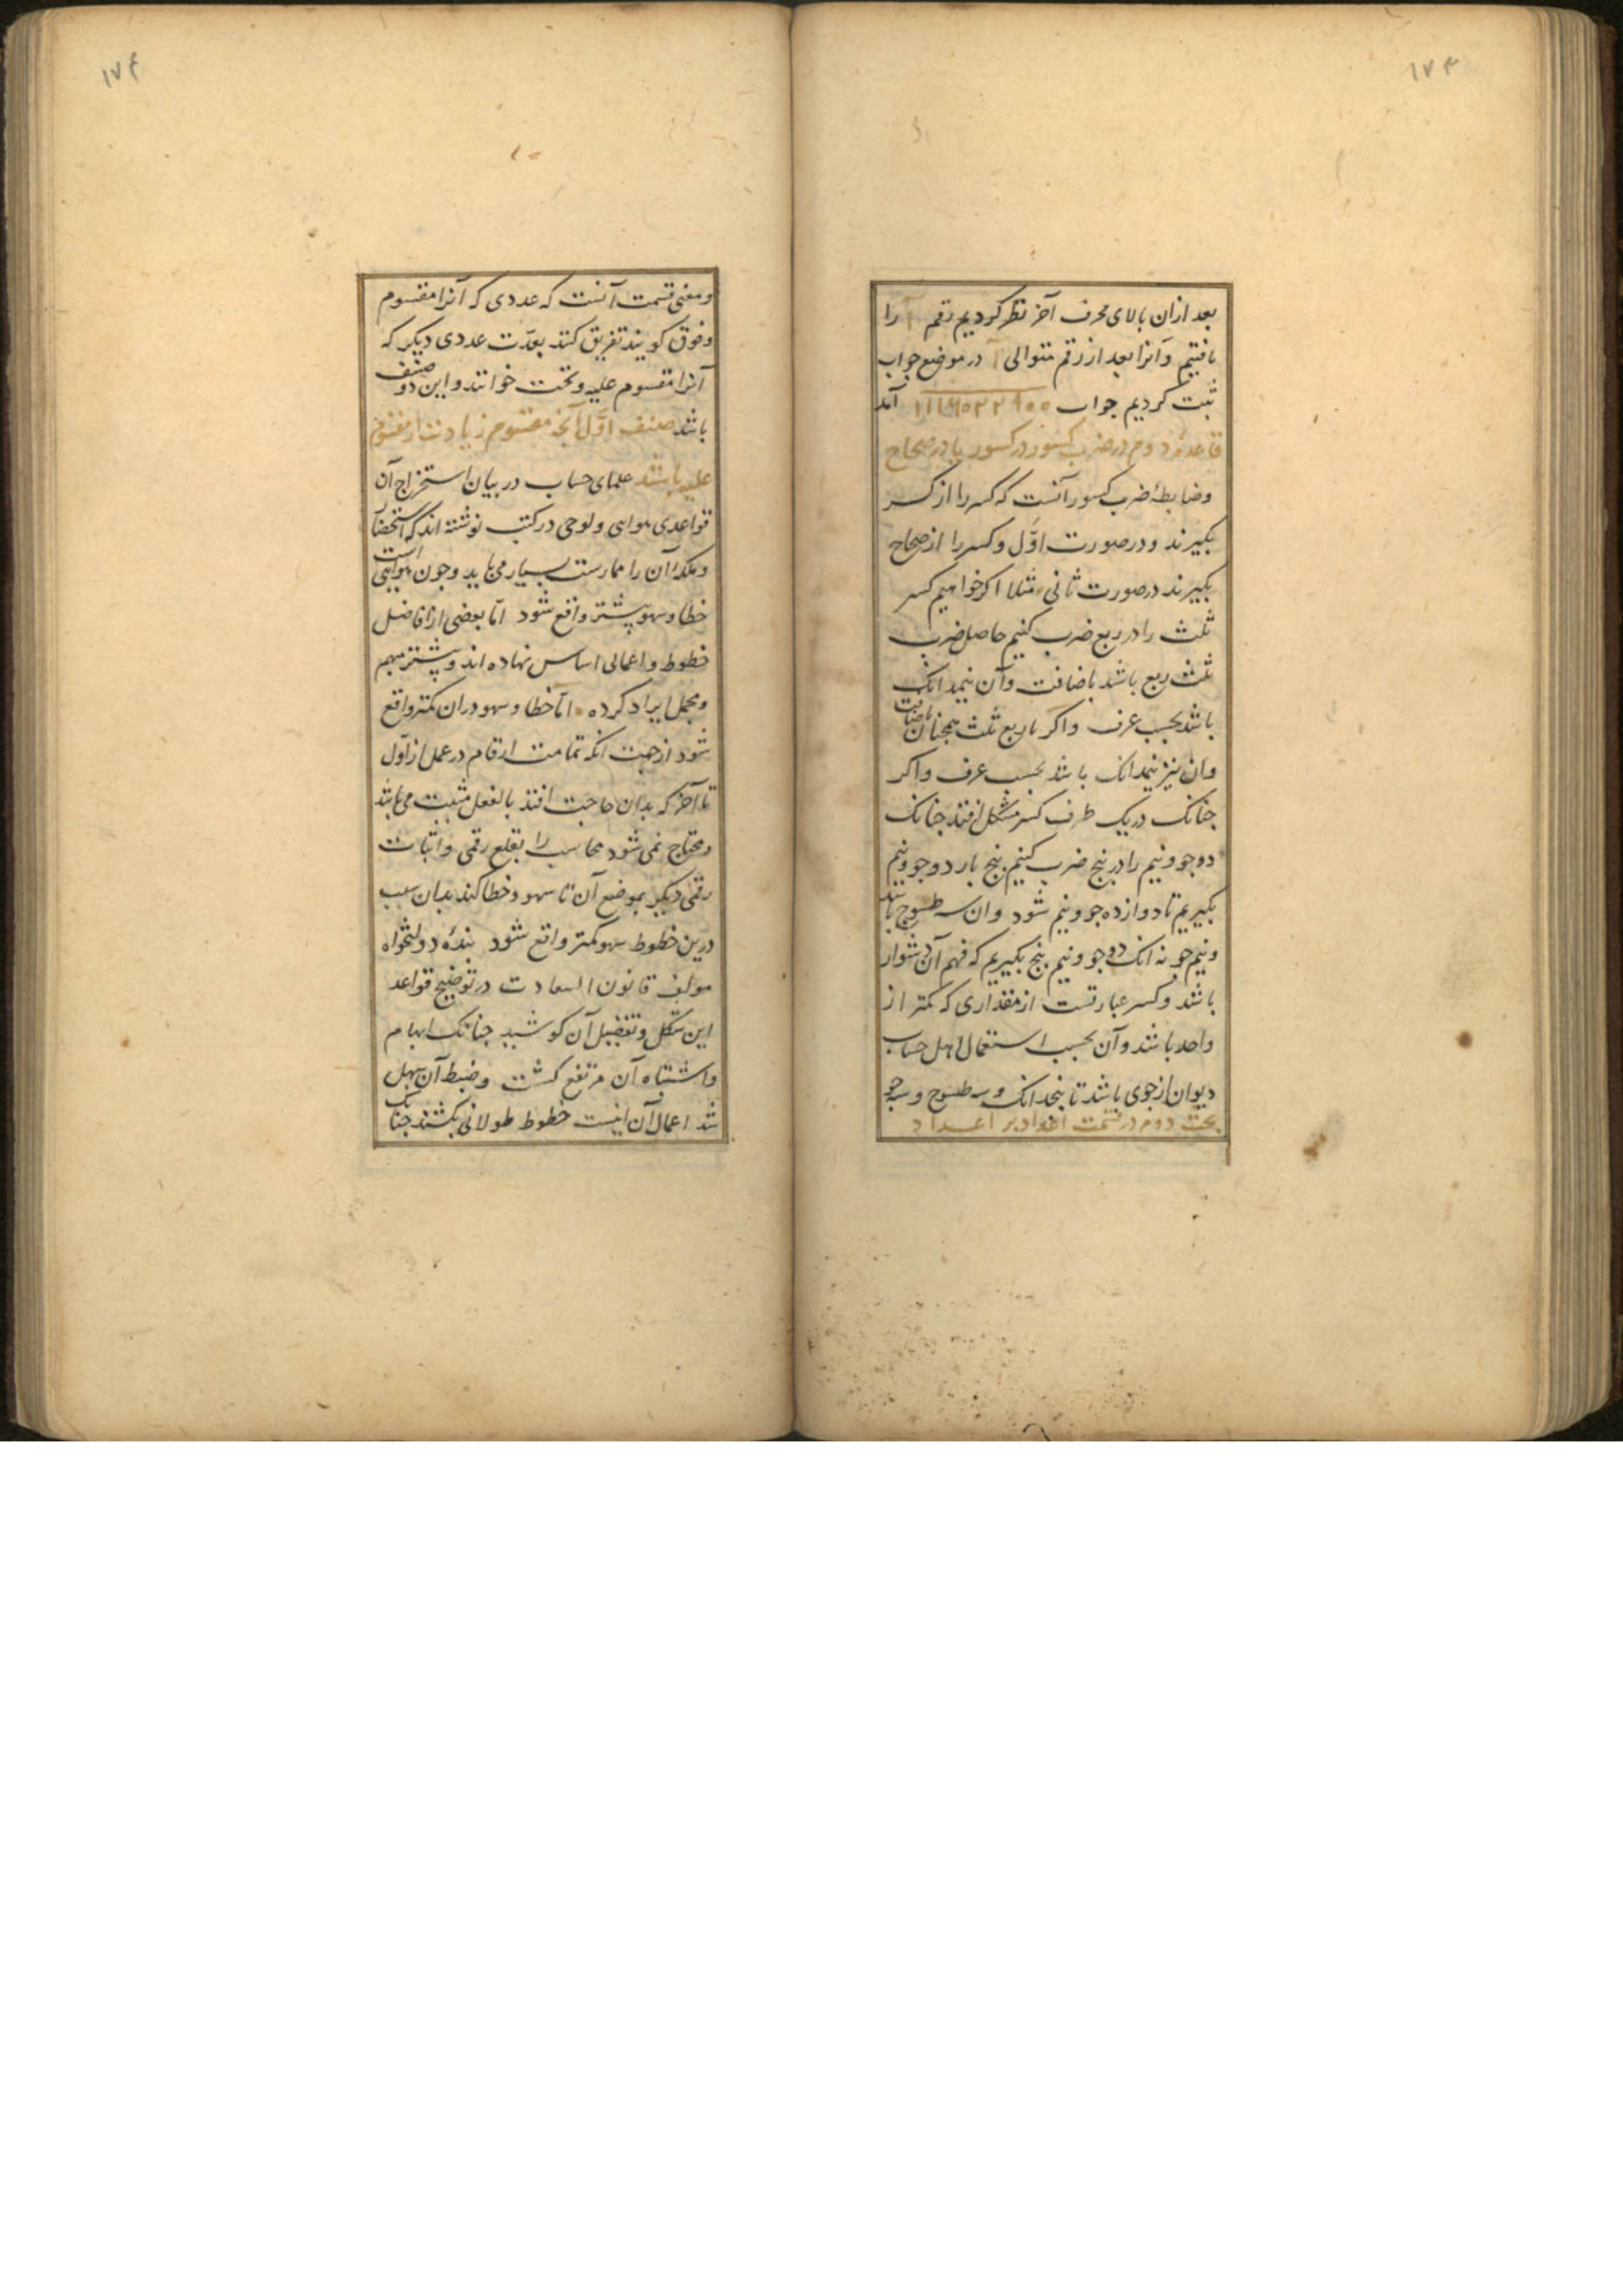 ۱۷۳
بعد ازان بالای محرف آخر نظر کردیم رقم ا را
یافتیم و آنرا بعد از رقم متوالی ا در موضع جواب
ثبت کردیم جواب آمد
قاعدهٔ دوم در ضرب کسور در کسور یا در صحاح
وضابطهٔ ضرب کسور آنست که کسر را از کسر
بکیرند و در صورت اوّل وکسر را از صحاح
بکیرند در صورت ثانی مثلا اکر خواهیم کسر
ثلث را در ربع ضرب کنیم حاصل ضرب
ثلث ربع باشد باضافت وآن نیمدانک
باشد بحسب عرف واکر با ربع ثلث همچنان باضافت
وان نیز نیمدانک باشد بحسب عرف واکر
جنانک دریک طرف کسر مشکل افتد جنانک
دو جو ونیم را در پنج ضرب کنیم پنج بار دو جو ونیم
بکیریم تا دوازده جو ونیم شود وان سه طسوج باشد
ونیم جو نه انک دو جو ونیم پنج بکیریم که فهم آن دشوار
باشد وکسر عبارتست از مقداری که کمتر از
واحد باشد وآن بحسب استعمال اهل حساب
دیوان از جوی باشد تا پنجدانک وسه طسوج وسه جو
بحث دوم در قسمت اعداد بر اعداد
۱۷۴
ومعنی قسمت آنست که عددی که آنرا مقسوم
وفوق کویند تفریق کنند بعدّت عددی دیکر که
آنرا مقسوم علیه وتحت خوانند واین دو صنف
باشد صنف اوّل آنچه مقسوم زیادت از مقسوم
علیه باشد علمای حساب در بیان استخراج آن
قواعدی هوایی ولوحی در کتب نوشته اند که استحضار
وملکهٔ آن را ممارست بسیار می باید وجون هوایی است
خطا وسهو بیشتر واقع شود امّا بعضی از افاضل
خطوط واعمالی اساس نهاده اند وبیشتر مبهم
ومجمل ایراد کرده امّا خطا وسهو دران کمتر واقع
شود از جهت انکه تمامت ارقام در عمل از اوّل
تا آخر که بدان حاجت افتد بالفعل مثبت می باشد
ومحتاج نمی شود محاسب را بقلع رقمی واثبات
رقمی دیکر بموضع آن تا سهو وخطا کند بدان سبب
درین خطوط سهو کمتر واقع شود بندهٔ دولتخواه
مولف قانون السعادت در توضیح قواعد
این شکل وتفضیل آن کوشید جنانک ابهام
واشتباه آن مرتفع کشت وضبط آن سهل
شد اعمال آن اینست خطوط طولانی بکشند جنانک